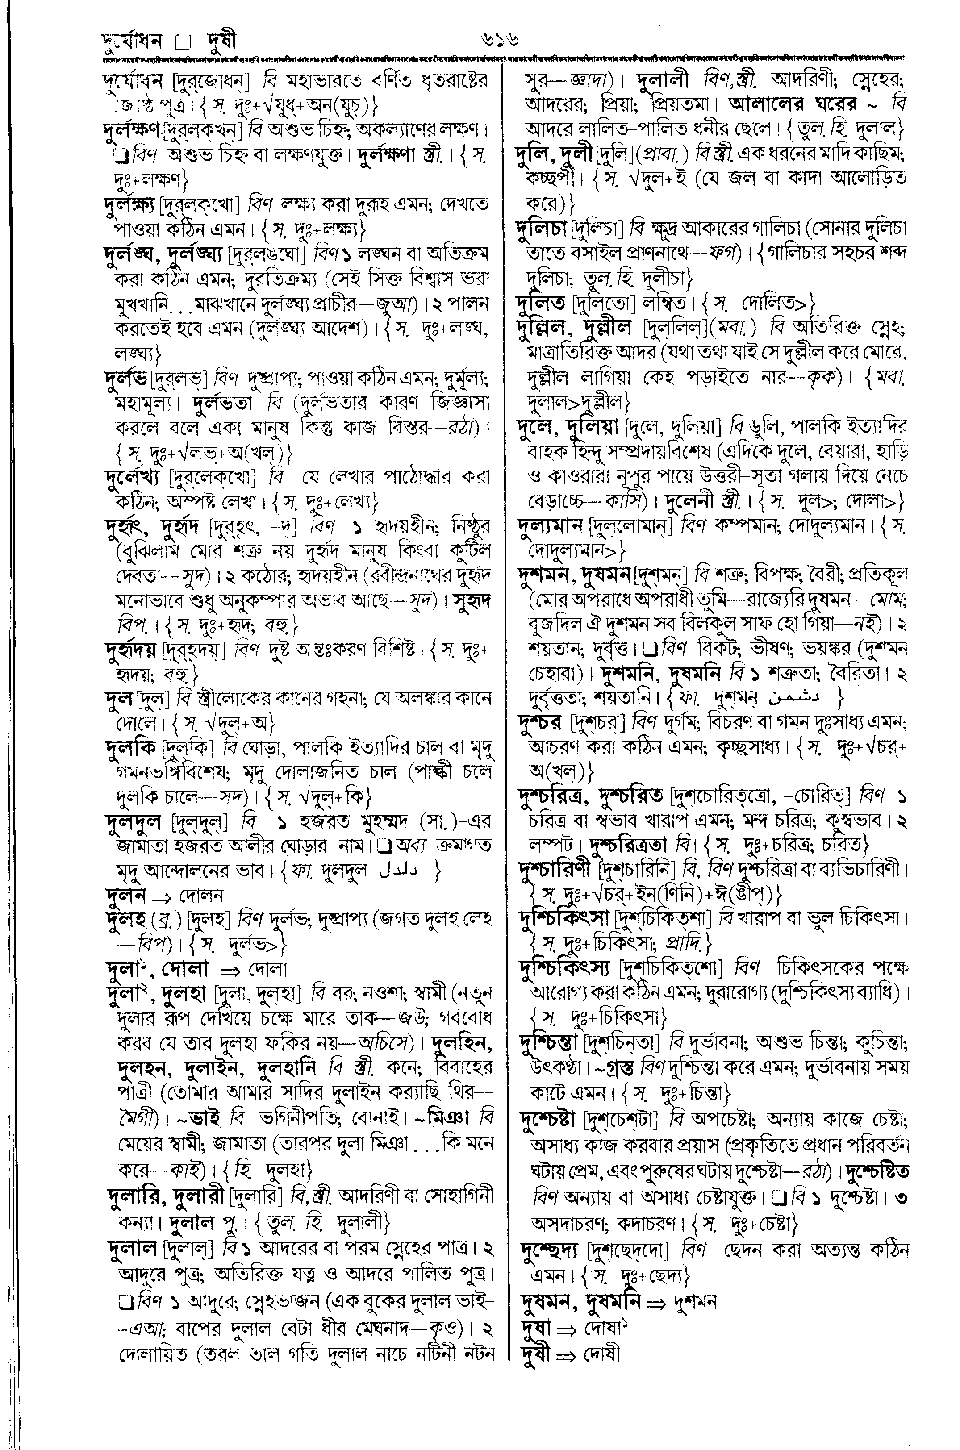 দুর্যোধন □ দুষী
৬১৬
দুর্যোধন [দুর্‌জোধন্] বি মহাভারতে বর্ণিত ধৃতরাষ্ট্রের
জ্যেষ্ঠ পুত্র। {স. দুঃ+√যুধ্+অন(যুচ্)}
দুর্লক্ষণ [দুর্‌লক্‌খন্] বি অশুভ চিহ্ন; অকল্যাণের লক্ষণ।
□ বিণ অশুভ চিহ্ন বা লক্ষণযুক্ত। দুর্লক্ষণা স্ত্রী.। {স.
দুঃ+লক্ষণ}
দুর্লক্ষ্য [দুর্‌লক্‌খো] বিণ লক্ষ্য করা দুরূহ এমন; দেখতে
পাওয়া কঠিন এমন। {স. দুঃ+লক্ষ্য}
দুর্লঙ্ঘ, দুর্লঙ্ঘ্য [দুর্‌লঙঘো] বিণ ১ লঙ্ঘন বা অতিক্রম
করা কঠিন এমন; দুরতিক্রম্য (সেই সিক্ত বিশ্বাস ভরা
মুখখানি...মাঝখানে দুর্লঙ্ঘ্য প্রাচীর—জুআ)। ২ পালন
করতেই হবে এমন (দুর্লঙ্ঘ্য আদেশ)। {স. দুঃ+লঙ্ঘ,
লঙ্ঘ্য}
দুর্লভ [দুর্‌লভ্] বিণ দুষ্প্রাপ্য; পাওয়া কঠিন এমন; দুর্মূল্য;
মহামূল্য। দুর্লভতা বি (দুর্লভতার কারণ জিজ্ঞাসা
করলে বলে একা মানুষ কিন্তু কাজ বিস্তর—রঠা)।
{স. দুঃ+√লভ্+অ(খল্)}
দুর্লেখ্য [দুর্‌লেক্‌খো] বি যে লেখার পাঠোদ্ধার করা
কঠিন; অস্পষ্ট লেখা। {স. দুঃ+লেখ্য}
দুর্হৃৎ, দুর্হৃদ [দুর্‌হৃৎ, -দ্] বিণ ১ হৃদয়হীন; নিষ্ঠুর
(বুঝিলাম মোর শত্রু নয় দুর্হৃদ মানুষ কিংবা কুটিল
দেবতা—সুদ)। ২ কঠোর; হৃদয়হীন (রবীন্দ্রনাথের দুর্হৃদ
মনোভাবে শুধু অনুকম্পার অভাব আছে—সুদ)। সুহৃদ
বিপ.। {স. দুঃ+হৃদ; বহু}
দুর্হৃদয় [দুর্‌হৃদয়্] বিণ দুষ্ট অন্তঃকরণ বিশিষ্ট। {স. দুঃ+
হৃদয়; বহু}
দুল [দুল্] বি স্ত্রীলোকের কানের গহনা; যে অলঙ্কার কানে
দোলে। {স. √দুল্+অ}
দুলকি [দুল্‌কি] বি ঘোড়া, পালকি ইত্যাদির চাল বা মৃদু
গমনভঙ্গিবিশেষ; মৃদু দোলাজনিত চাল (পাল্কী চলে
দুলকি চালে—সদ)। {স. √দুল্+কি}
দুলদুল [দুল্‌দুল্] বি ১ হজরত মুহম্মদ (সা.)-এর
জামাতা হজরত আলীর ঘোড়ার নাম। □ অব্য ক্রমাগত
মৃদু আন্দোলনের ভাব। {ফা. দুলদুল دلدل }
দুলন ⇒ দোলন
দুলহ (ব্র.) [দুলহ] বিণ দুর্লভ; দুষ্প্রাপ্য (জগত দুলহ লেহ
—বিপ)। {স. দুর্লভ>}
দুলা১, দোলা ⇒ দোলা
দুলা২, দুলহা [দুলা, দুল্‌হা] বি বর; নওশা; স্বামী (নতুন
দুলার রূপ দেখিয়ে চক্ষে মারে তাক—জউ; গর্ববোধ
করব যে তার দুলহা ফকির নয়—অচিসে)। দুলহিন,
দুলহন, দুলাইন, দুলহানি বি স্ত্রী. কনে; বিবাহের
পাত্রী (তোমার আমার সাদির দুলাইন কর‍্যাছি থির—
মৈগী)। ~ভাই বি ভগিনীপতি; বোনাই। ~মিঞা বি
মেয়ের স্বামী; জামাতা (তারপর দুলা মিঞা...কি মনে
করে—কাই)। {হি. দুলহা}
দুলারি, দুলারী [দুলারি] বি,স্ত্রী. আদরিণী বা সোহাগিনী
কন্যা। দুলাল পু.। {তুল. হি. দুলালী}
দুলাল [দুলাল্] বি ১ আদরের বা পরম স্নেহের পাত্র। ২
আদুরে পুত্র; অতিরিক্ত যত্ন ও আদরে পালিত পুত্র।
□ বিণ ১ আদুরে; স্নেহভাজন (এক বুকের দুলাল ভাই—
—এআ; বাপের দুলাল বেটা ধীর মেঘনাদ—কৃও)। ২
দোলায়িত (তরল তাল গতি দুলাল নাচে নটিনী নটন
সুর—জ্ঞাদা)। দুলালী বিণ,স্ত্রী. আদরিণী; স্নেহের;
আদরের; প্রিয়া; প্রিয়তমা। আলালের ঘরের ~ বি
আদরে লালিত-পালিত ধনীর ছেলে। {তুল. হি. দুলাল}
দুলি, দুলী [দুলি](প্রাবা.) বি স্ত্রী. এক ধরনের মাদি কাছিম;
কচ্ছপী। {স. √দুল+ই (যে জল বা কাদা আলোড়িত
করে)}
দুলিচা [দুলিচা] বি ক্ষুদ্র আকারের গালিচা (সোনার দুলিচা
তাতে বসাইল প্রাণনাথে—ফগ)। {গালিচার সহচর শব্দ
দুলিচা; তুল. হি. দুলীচা}
দুলিত [দুলিতো] লম্বিত। {স. দোলিত>}
দুল্লিল, দুল্লীল [দুল্‌লিল্](মবা.) বি অতিরিক্ত স্নেহ;
মাত্রাতিরিক্ত আদর (যথা তথা যাই সে দুল্লীল করে মোরে,
দুল্লীল লাগিয়া কেহ পড়াইতে নার—কৃক)। {মবা.
দুলাল>দুল্লীল}
দুলে, দুলিয়া [দুলে, দুলিয়া] বি ডুলি, পালকি ইত্যাদির
বাহক হিন্দু সম্প্রদায়বিশেষ (এদিকে দুলে, বেয়ারা, হাড়ি
ও কাওরারা নূপুর পায়ে উত্তরী-সূতা গলায় দিয়ে নেচে
বেড়াচ্চে—কাসি)। দুলেনী স্ত্রী.। {স. দুল>; দোলা>}
দুল্যমান [দুল্‌লোমান্] বিণ কম্পমান; দোদুল্যমান। {স.
দোদুল্যমান>}
দুশমন, দুষমন [দুশ্‌মন্] বি শত্রু; বিপক্ষ; বৈরী; প্রতিকূল
(মোর অপরাধে অপরাধী তুমি—রাজ্যেরি দুষমন—মোম;
বুজদিল ঐ দুশমন সব বিলকুল সাফ হো গিয়া—নই)। ২
শয়তান; দুর্বৃত্ত। □ বিণ বিকট; ভীষণ; ভয়ঙ্কর (দুশমন
চেহারা)। দুশমনি, দুষমনি বি ১ শত্রুতা; বৈরিতা। ২
দুর্বৃত্ততা; শয়তানি। {ফা. দুশ্‌মন্ دشمن }
দুশ্চর [দুশ্‌চর্] বিণ দুর্গম; বিচরণ বা গমন দুঃসাধ্য এমন;
আচরণ করা কঠিন এমন; কৃচ্ছ্রসাধ্য। {স. দুঃ+√চর্+
অ(খল্)}
দুশ্চরিত্র, দুশ্চরিত [দুশ্‌চোরিত্‌ত্রো, -চোরিত্] বিণ ১
চরিত্র বা স্বভাব খারাপ এমন; মন্দ চরিত্র; কুস্বভাব। ২
লম্পট। দুশ্চরিত্রতা বি। {স. দুঃ+চরিত্র; চরিত}
দুশ্চারিণী [দুশ্‌চারিনি] বি, বিণ দুশ্চরিত্রা বা ব্যভিচারিণী।
{স. দুঃ+√চর্+ইন(ণিনি)+ঈ(ঙীপ্)}
দুশ্চিকিৎসা [দুশ্‌চিকিত্‌শা] বি খারাপ বা ভুল চিকিৎসা।
{স. দুঃ+চিকিৎসা; প্রাদি.}
দুশ্চিকিৎস্য [দুশ্‌চিকিত্‌শো] বিণ চিকিৎসকের পক্ষে
আরোগ্য করা কঠিন এমন; দুরারোগ্য (দুশ্চিকিৎস্য ব্যাধি)।
{স. দুঃ+চিকিৎস্য}
দুশ্চিন্তা [দুশ্‌চিন্‌তা] বি দুর্ভাবনা; অশুভ চিন্তা; কুচিন্তা;
উৎকণ্ঠা। ~গ্রস্ত বিণ দুশ্চিন্তা করে এমন; দুর্ভাবনায় সময়
কাটে এমন। {স. দুঃ+চিন্তা}
দুশ্চেষ্টা [দুশ্‌চেশ্‌টা] বি অপচেষ্টা; অন্যায় কাজে চেষ্টা;
অসাধ্য কাজ করবার প্রয়াস (প্রকৃতিতে প্রধান পরিবর্তন
ঘটায় প্রেম, এবং পুরুষের ঘটায় দুশ্চেষ্টা—রঠা)। দুশ্চেষ্টিত
বিণ অন্যায় বা অসাধ্য চেষ্টাযুক্ত। □ বি ১ দুশ্চেষ্টা। ৩
অসদাচরণ; কদাচরণ। {স. দুঃ+চেষ্টা}
দুশ্ছেদ্য [দুশ্‌ছেদ্‌দো] বিণ ছেদন করা অত্যন্ত কঠিন
এমন। {স. দুঃ+ছেদ্য}
দুষমন, দুষমনি ⇒ দুশমন
দুষা ⇒ দোষা১
দুষী ⇒ দোষী